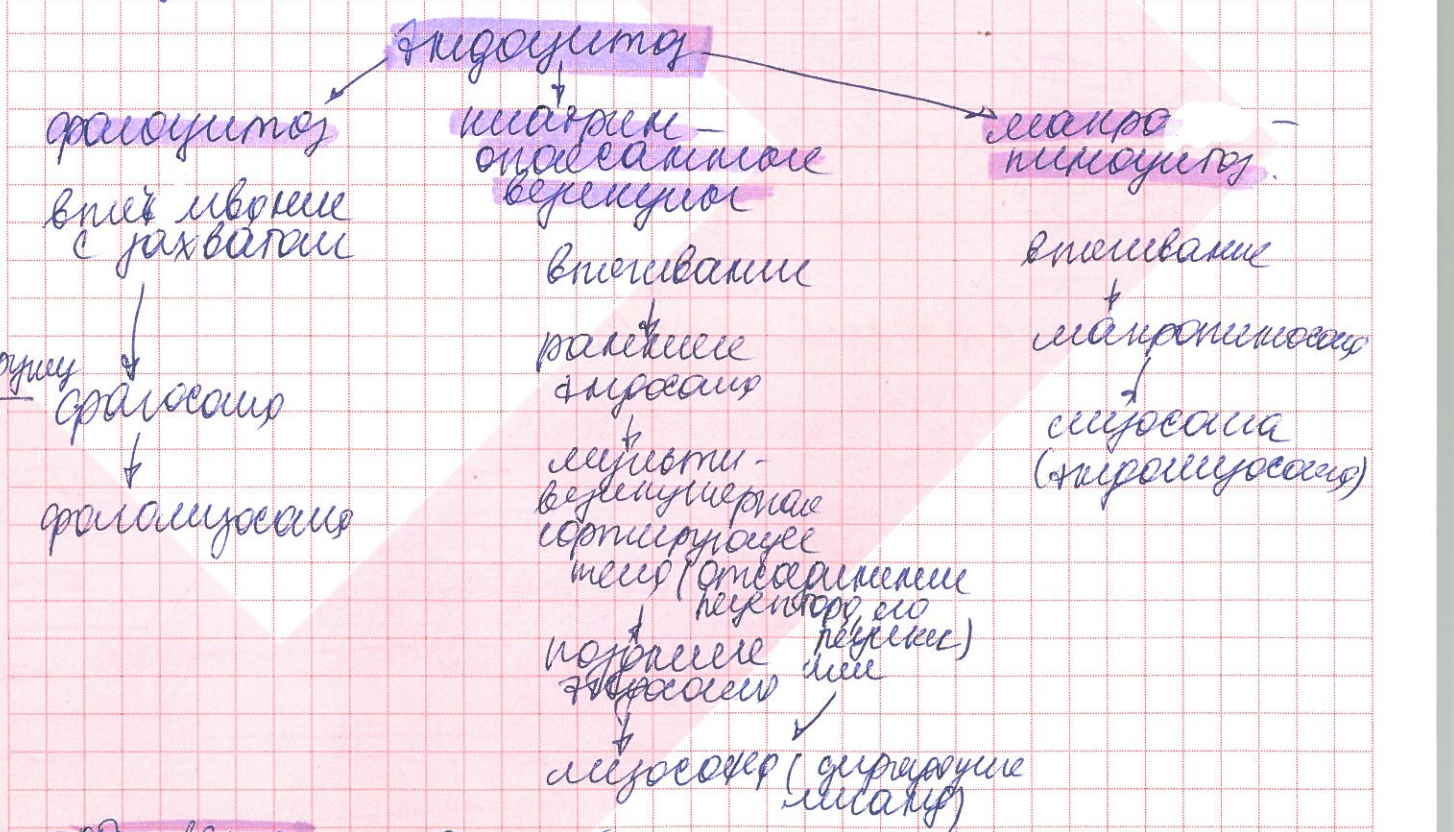 эндоцитоз
фагоцитоз
впячивание
с захватом
фагосома
фаголизосома
клатрин-
опоясанные
везикулы
впячивание
ранние
эндосомы
мульти-
везикулярное
сортирующее
тело (отсоединение
рецептора, его
рецикл)
поздние или
эндосомы
лизосома (деградация
лиганд)
макро -
пиноцитоз
впячивание
макропиносома
лизосома
(эндолизосома)